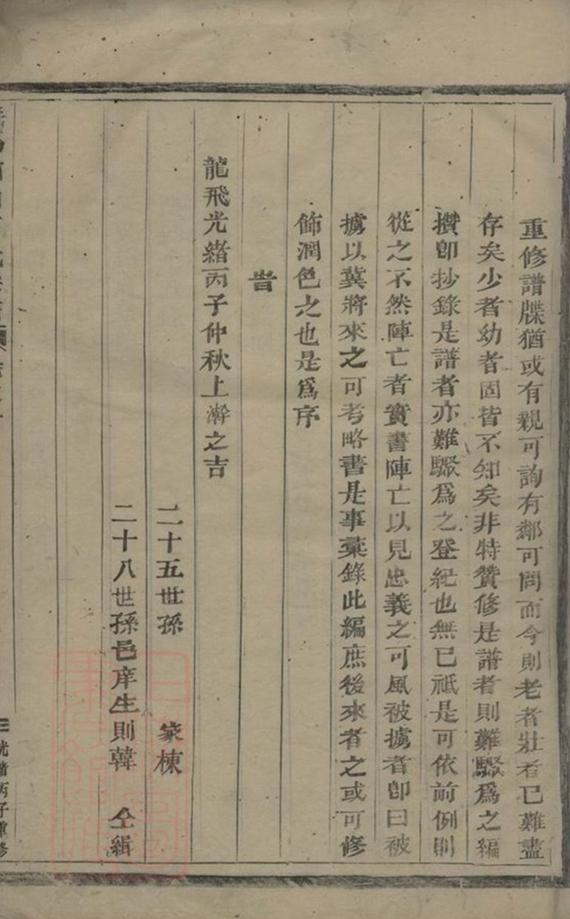 重修譜牒猶或有親可詢有鄰可問而今則老者壯者已難盡
存矣少者幼者固皆不知矣非特贊修是譜者則難驟為之編
攢即抄錄是譜者亦難驟為之登紀也無已祗是可依前例則
從之不然陣亡者實書陣亡以見忠義之可風被擄者即曰被
擄以冀將來之可考略書是事彚錄此編庶後來者之或可修
飾潤色之也是為序
旹
龍飛光緒丙子仲秋上澣之吉
二十五世孫 家棟
二十八世孫邑庠生則韓 仝緝
光緒丙子重修